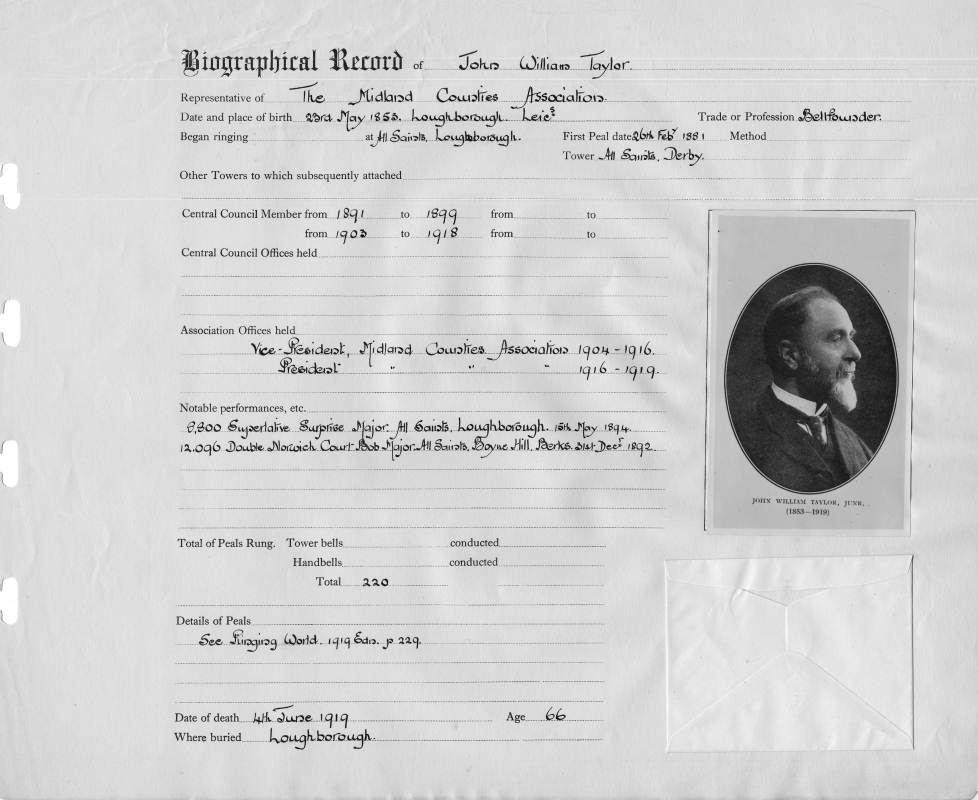 Biographical Record of John William Taylor.
Representative of The Midland Counties Association.
Date and place of birth 23rd May 1853. Loughborough. Leics Trade or Profession Bellfounder.
Began ringing at All Saints, Loughborough. First Peal date 26th Feby 1881 Method
Tower All Saints, Derby.
Other Towers to which subsequently attached
Central Council Member from 1891 to 1899 from to
from 1903 to 1918 from to
Central Council Offices held
Association Offices held
Vice-President, Midland Counties Association 1904-1916.
President " " " 1916-1919.
Notable performances, etc.
8,800 Superlative Surprise Major. All Saints, Loughborough. May 1894.
12,096 Double Norwich Court Bob Major. All Saints, Boyne Hill, Berks. 31st Decr 1892.
JOHN WILLIAM TAYLOR, JUNR.
(1853—1919)
Total of Peals Rung. Tower bells conducted
Handbells conducted
Total 220
Details of Peals
See Ringing World. 1919 Edn. p 229.
Date of death 4th June 1919 Age 66
Where buried Loughborough.